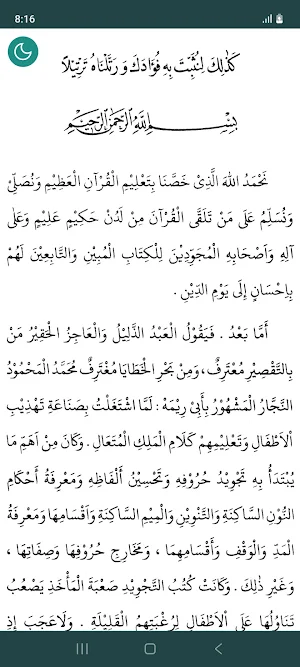 8:16
كَذٰلِكَ لِنُثَبِّتَ بِهِ فُؤَادَكَ وَ رَتَّلْنَاهُ تَرْتِيْلًا
بِسْمِ اللهِ الرَّحْمٰنِ الرَّحِيْمِ
نَحْمَدُ اللهَ الَّذِيْ خَصَّنَا بِتَعْلِيْمِ الْقُرْآنِ الْعَظِيْمِ وَنُصَلِّيْ
وَنُسَلِّمُ عَلَى مَنْ تَلَقَّى الْقُرْآنَ مِنْ لَدُنْ حَكِيْمٍ عَلِيْمٍ وَعَلَى
آلِهِ وَاَصْحَابِهِ الْمُجَوِّدِيْنَ لِلْكِتَابِ الْمُبِيْنِ وَالتَّابِعِيْنَ لَهُمْ
بِاِحْسَانٍ إِلَى يَوْمِ الدِّيْنِ .
أَمَّا بَعْدُ . فَيَقُوْلُ الْعَبْدُ الذَّلِيْلُ وَالْعَاجِزُ الْحَقِيْرُ مَنْ
بِالتَّقْصِيْرِ مُعْتَرِفٌ ، وَمِنْ بَحْرِ الْخَطَايَا مُغْتَرِفٌ مُحَمَّدُ الْمَحْمُوْدُ
النَّجَّارُ الْمَشْهُوْرُ بِأَبِيْ رِيْمَةْ : لَمَّا اشْتَغَلْتُ بِصَنَاعَةِ تَهْذِيْبِ
اْلاَطْفَالِ وَتَعْلِيْمِهِمْ كَلَامَ الْمَلِكِ الْمُتَعَالِ . وَكَانَ مِنْ اَهَمِّ مَا
يُبْتَدَأُ بِهِ تَجْوِيْدُ حُرُوْفِهِ وَتَحْسِيْنُ أَلْفَاظِهِ وَمَعْرِفَةُ أَحْكَامِ
النُّوْنِ السَّاكِنَةِ وَالتَّنْوِيْنِ وَالْمِيْمِ السَّاكِنَةِ وَاَقْسَامِهَا وَمَعْرِفَةُ
الْمَدِّ وَالْوَقْفِ وَأَقْسَامِهِمَا ، وَمَخَارِجِ حُرُوْفِهَا وَصِفَاتِهَا ،
وَغَيْرِ ذٰلِكَ . وَكَانَتْ كُتُبُ التَّجْوِيْدِ صَعْبَةَ الْمَأْخَذِ يَصْعُبُ
تَنَاوُلُهَا عَلَى اْلاَطْفَالِ لِرُغْبَتِهِمُ الْقَلِيْلَةِ . وَلَاعَجَبَ إِذِ